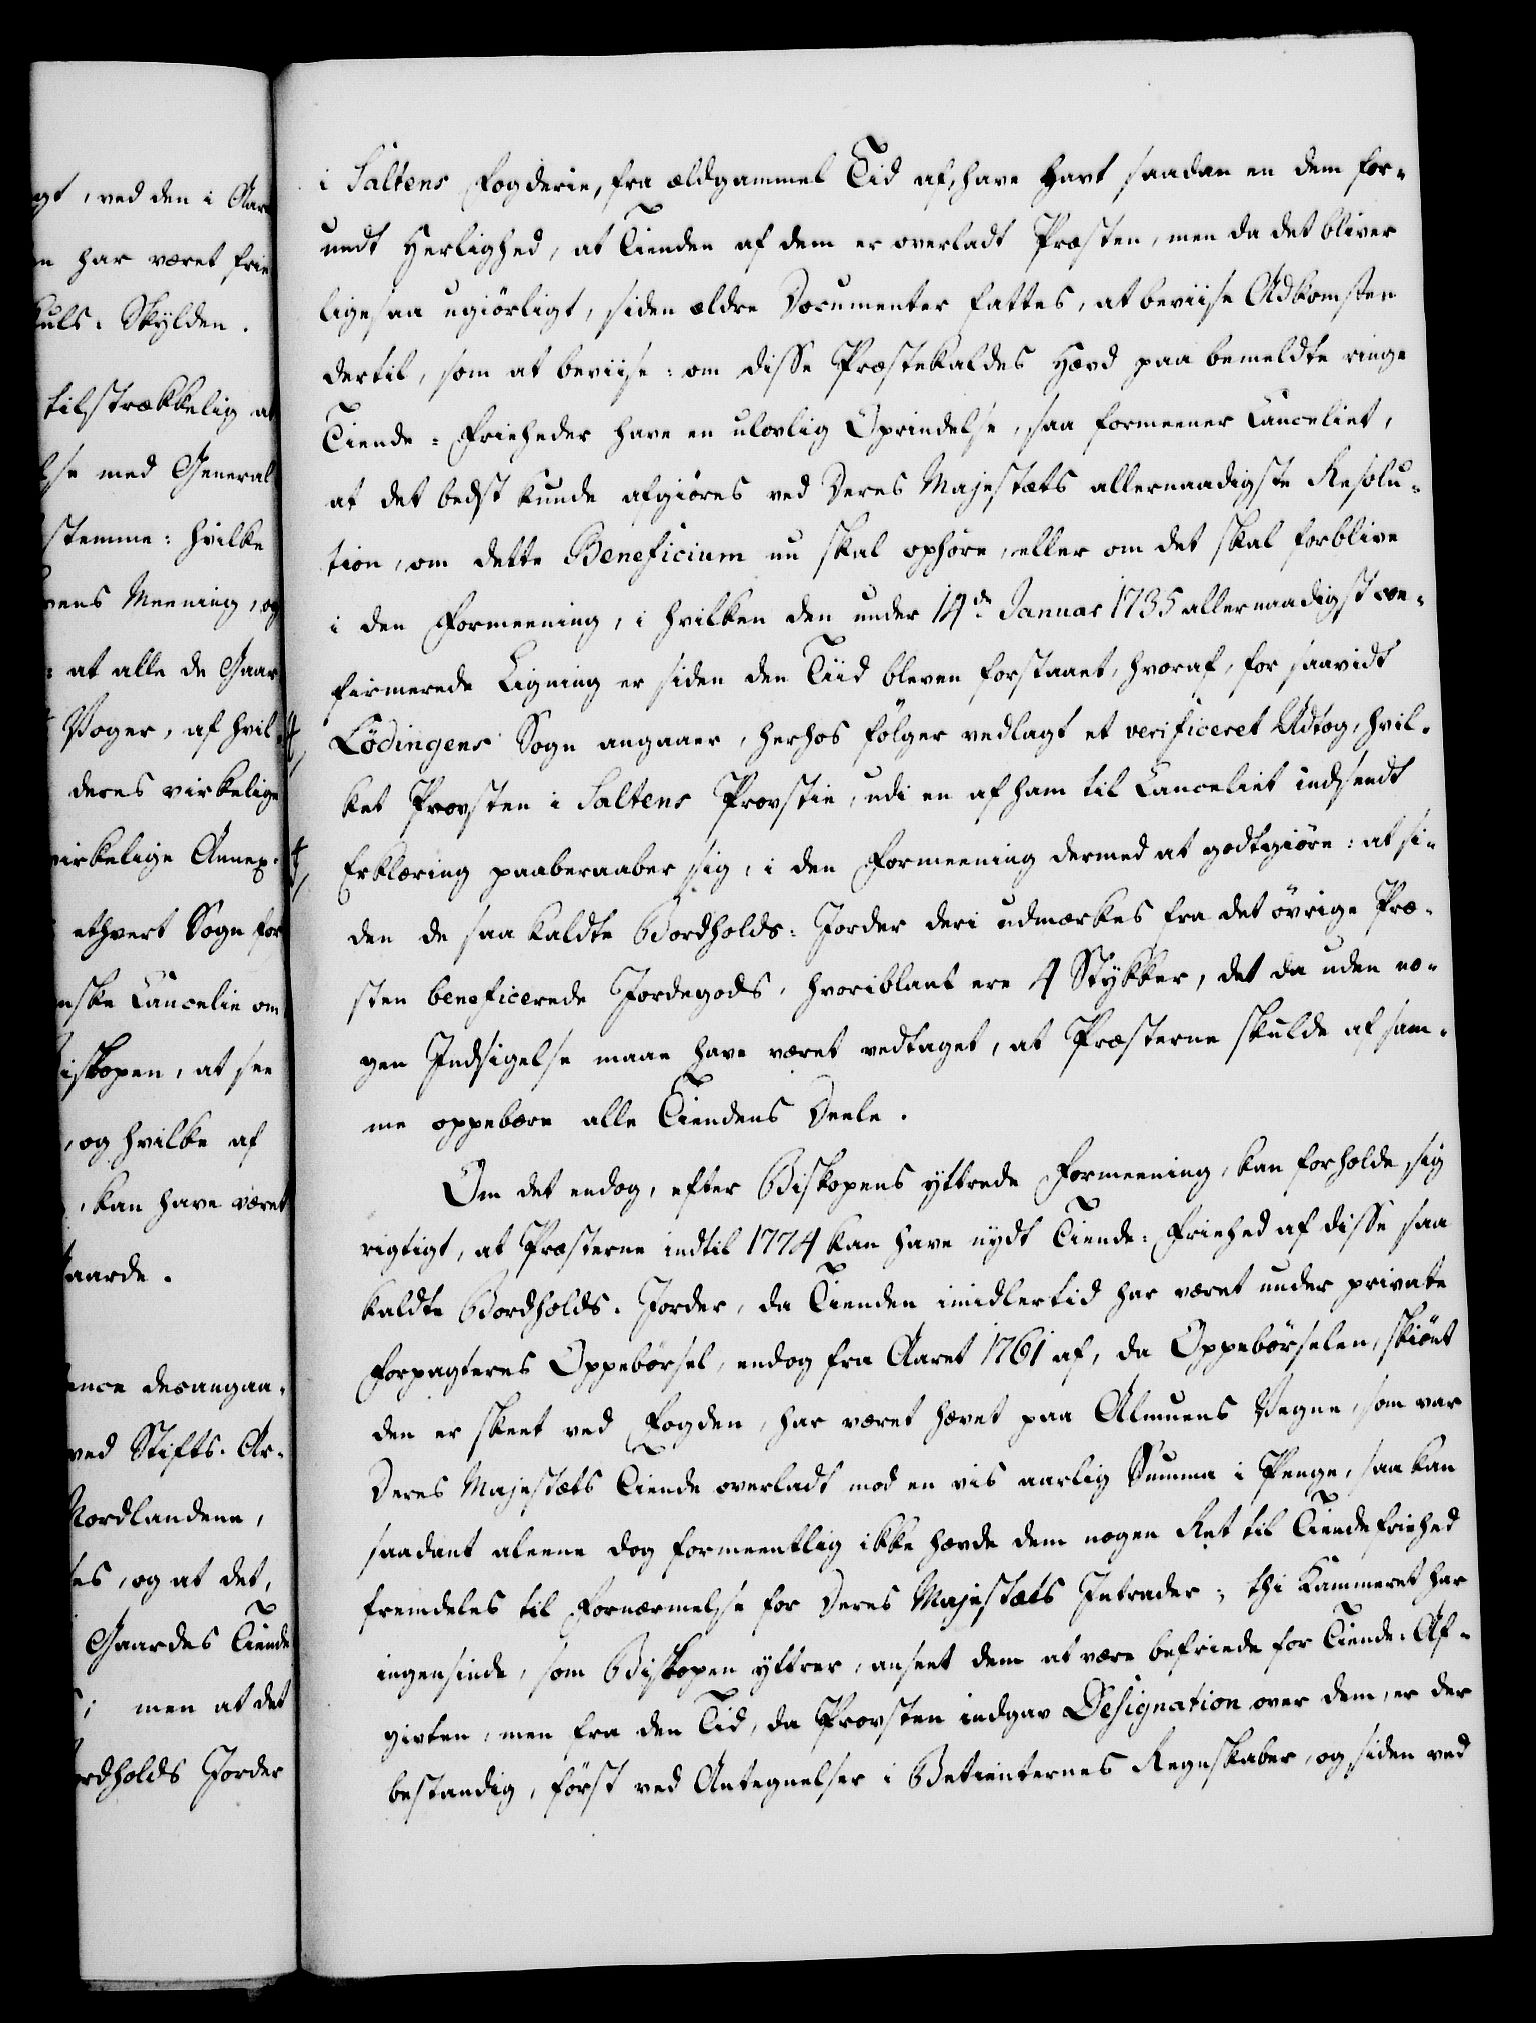 gt, ved den i Aar
n har været frie
kuls. Skylden.
tilstrækkelig at
lse med General
stemme: hvilke
vens Meening, og
: at alle de Gaar
Woger, af hvil-
deres virkelige
virkelige Annex-
ethvert Sogn for
nske Cancelie om
iskopen, at see
, og hvilke af
, kan have været
aarde.
ence desangaa-
ved Stifts. Ar-
Nordlandene,
es, og at det,
Gaardes Tiende
; men at det
ordholds Jorder
i Saltens Fogderie, fra ældgammel Tid af, have havt saadan en dem for-
undt Herlighed, at Tienden af dem er overladt Præsten, men da det bliver
ligesaa ugiörligt, siden ældre Documenter fattes, at beviise Adkomsten
dertil, som at beviise: om disse Præstekaldes Hævd paa bemeldte ringe
Tiende-Frieheder have en ulovlig Oprindelse, saa formeener Canceliet,
at det bedst kunde afgiöres ved Deres Majestæts allernaadigste Resolu-
tion, om dette Beneficium nu skal ophöre, eller om det skal forblive
i den Formeening, i hvilken den under 14de Januar 1735 allernaadigst con-
firmerede Ligning er siden den Tiid bleven forstaaet, hvoraf, for saavidt
Lödingens Sogn angaaer, herhos fölger vedlagt et verificeret Udtog, hvil-
ket Provsten i Saltens Provstie, udi en af ham til Canceliet indsendt
Erklæring paaberaaber sig, i den Formeening dermed at godtgiöre: at si-
den de saa kaldte Bordholds-Jorder deri udmærkes fra det övrige Præ-
sten beneficerede Jordegods, hvoriblant ere 4 Stykker, det da uden no-
gen Indsigelse maae have været vedtaget, at Præsterne skulde af sam-
me oppebære alle Tiendens Deele.
Om det endog, efter Biskopens yttrede Formeening, kan forholde sig
rigtigt, at Præsterne indtil 1774 kan have nydt Tiende-Friehed af disse saa
kaldte Bordholds-Jorder, da Tienden imidlertid har været under private
Forpagteres Oppebörsel, endog fra Aaret 1761 af, da Oppebörselen, skiönt
den er skeet ved Fogden, har været hævet paa Almuens Vegne, som var
Deres Majestæts Tiende overladt mod en vis aarlig Summa i Penge, saa kan
saadant aleene dog formeentlig ikke hævde dem nogen Ret til Tiendefriehed
fremdeles til Fornærmelse for Deres Majestæts Intrader; thi Kammeret har
ingensinde, som Biskopen yttrer, anseet dem at være befriede for Tiende-Af-
givten, men fra den Tid, da Provsten indgav Designation over dem, er der
bestandig, först ved Antegnelser i Betienternes Regnskaber, og siden ved